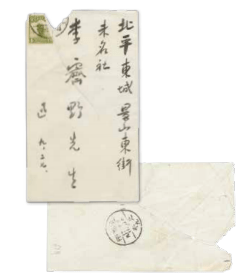 北平東城 景山東街
未名社
李霽野先生
九．二七．